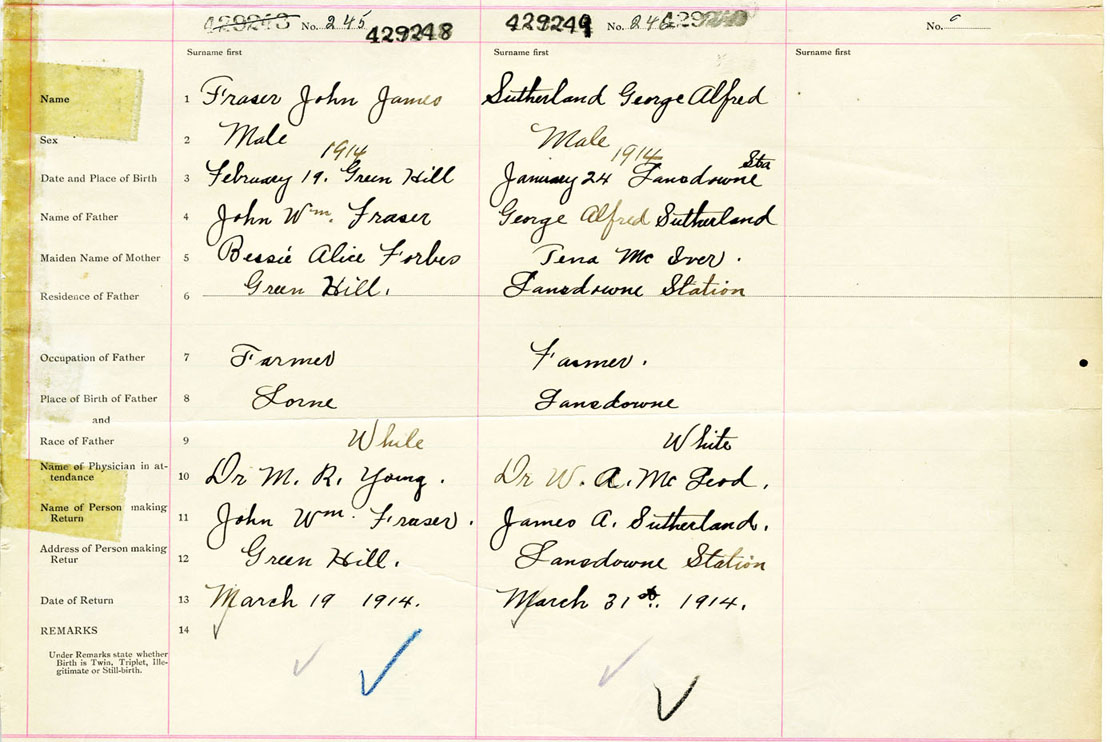 429248 No. 245 429248 429249 No. 246 No.
Surname first Surname first Surname first
Name 1 Fraser John James Sutherland George Alfred
Sex 2 Male Male
1914 1914 Sta
Date and Place of Birth 3 February 19. Green Hill January 24 Lansdowne
Name of Father 4 John Wm. Fraser George Alfred Sutherland
Maiden Name of Mother 5 Bessie Alice Forbes Tena Mc Iver.
Residence of Father 6 Green Hill. Lansdowne Station
Occupation of Father 7 Farmer Farmer.
Place of Birth of Father 8 Lorne Lansdowne
and
Race of Father 9 White White
Name of Physician in at-
tendance 10 Dr M. R. Young. Dr W. A. Mc Leod.
Name of Person making
Return 11 John Wm. Fraser. James A. Sutherland.
Address of Person making
Retur 12 Green Hill. Lansdowne Station
Date of Return 13 March 19 1914. March 31st. 1914.
REMARKS 14
Under Remarks state whether
Birth is Twin, Triplet, Ille-
gitimate or Still-birth.